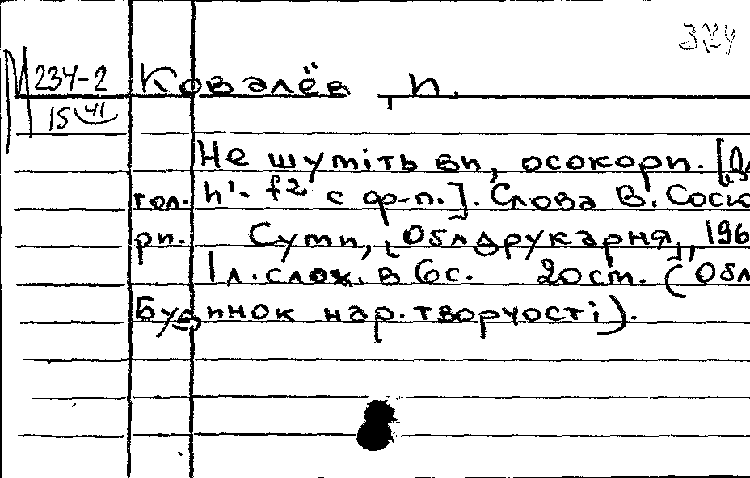 324
М 234-2 Ковалёв, П.
15 41
Не шумiть ви, осокори. [Дл
гол. h'- f2 с ф-п.]. Слова В. Соск
ри. Суми, „Облдрукарня„, 196
1 л. слож. в 6с. 20ст. (Обл
Будинок нар. творчостi).